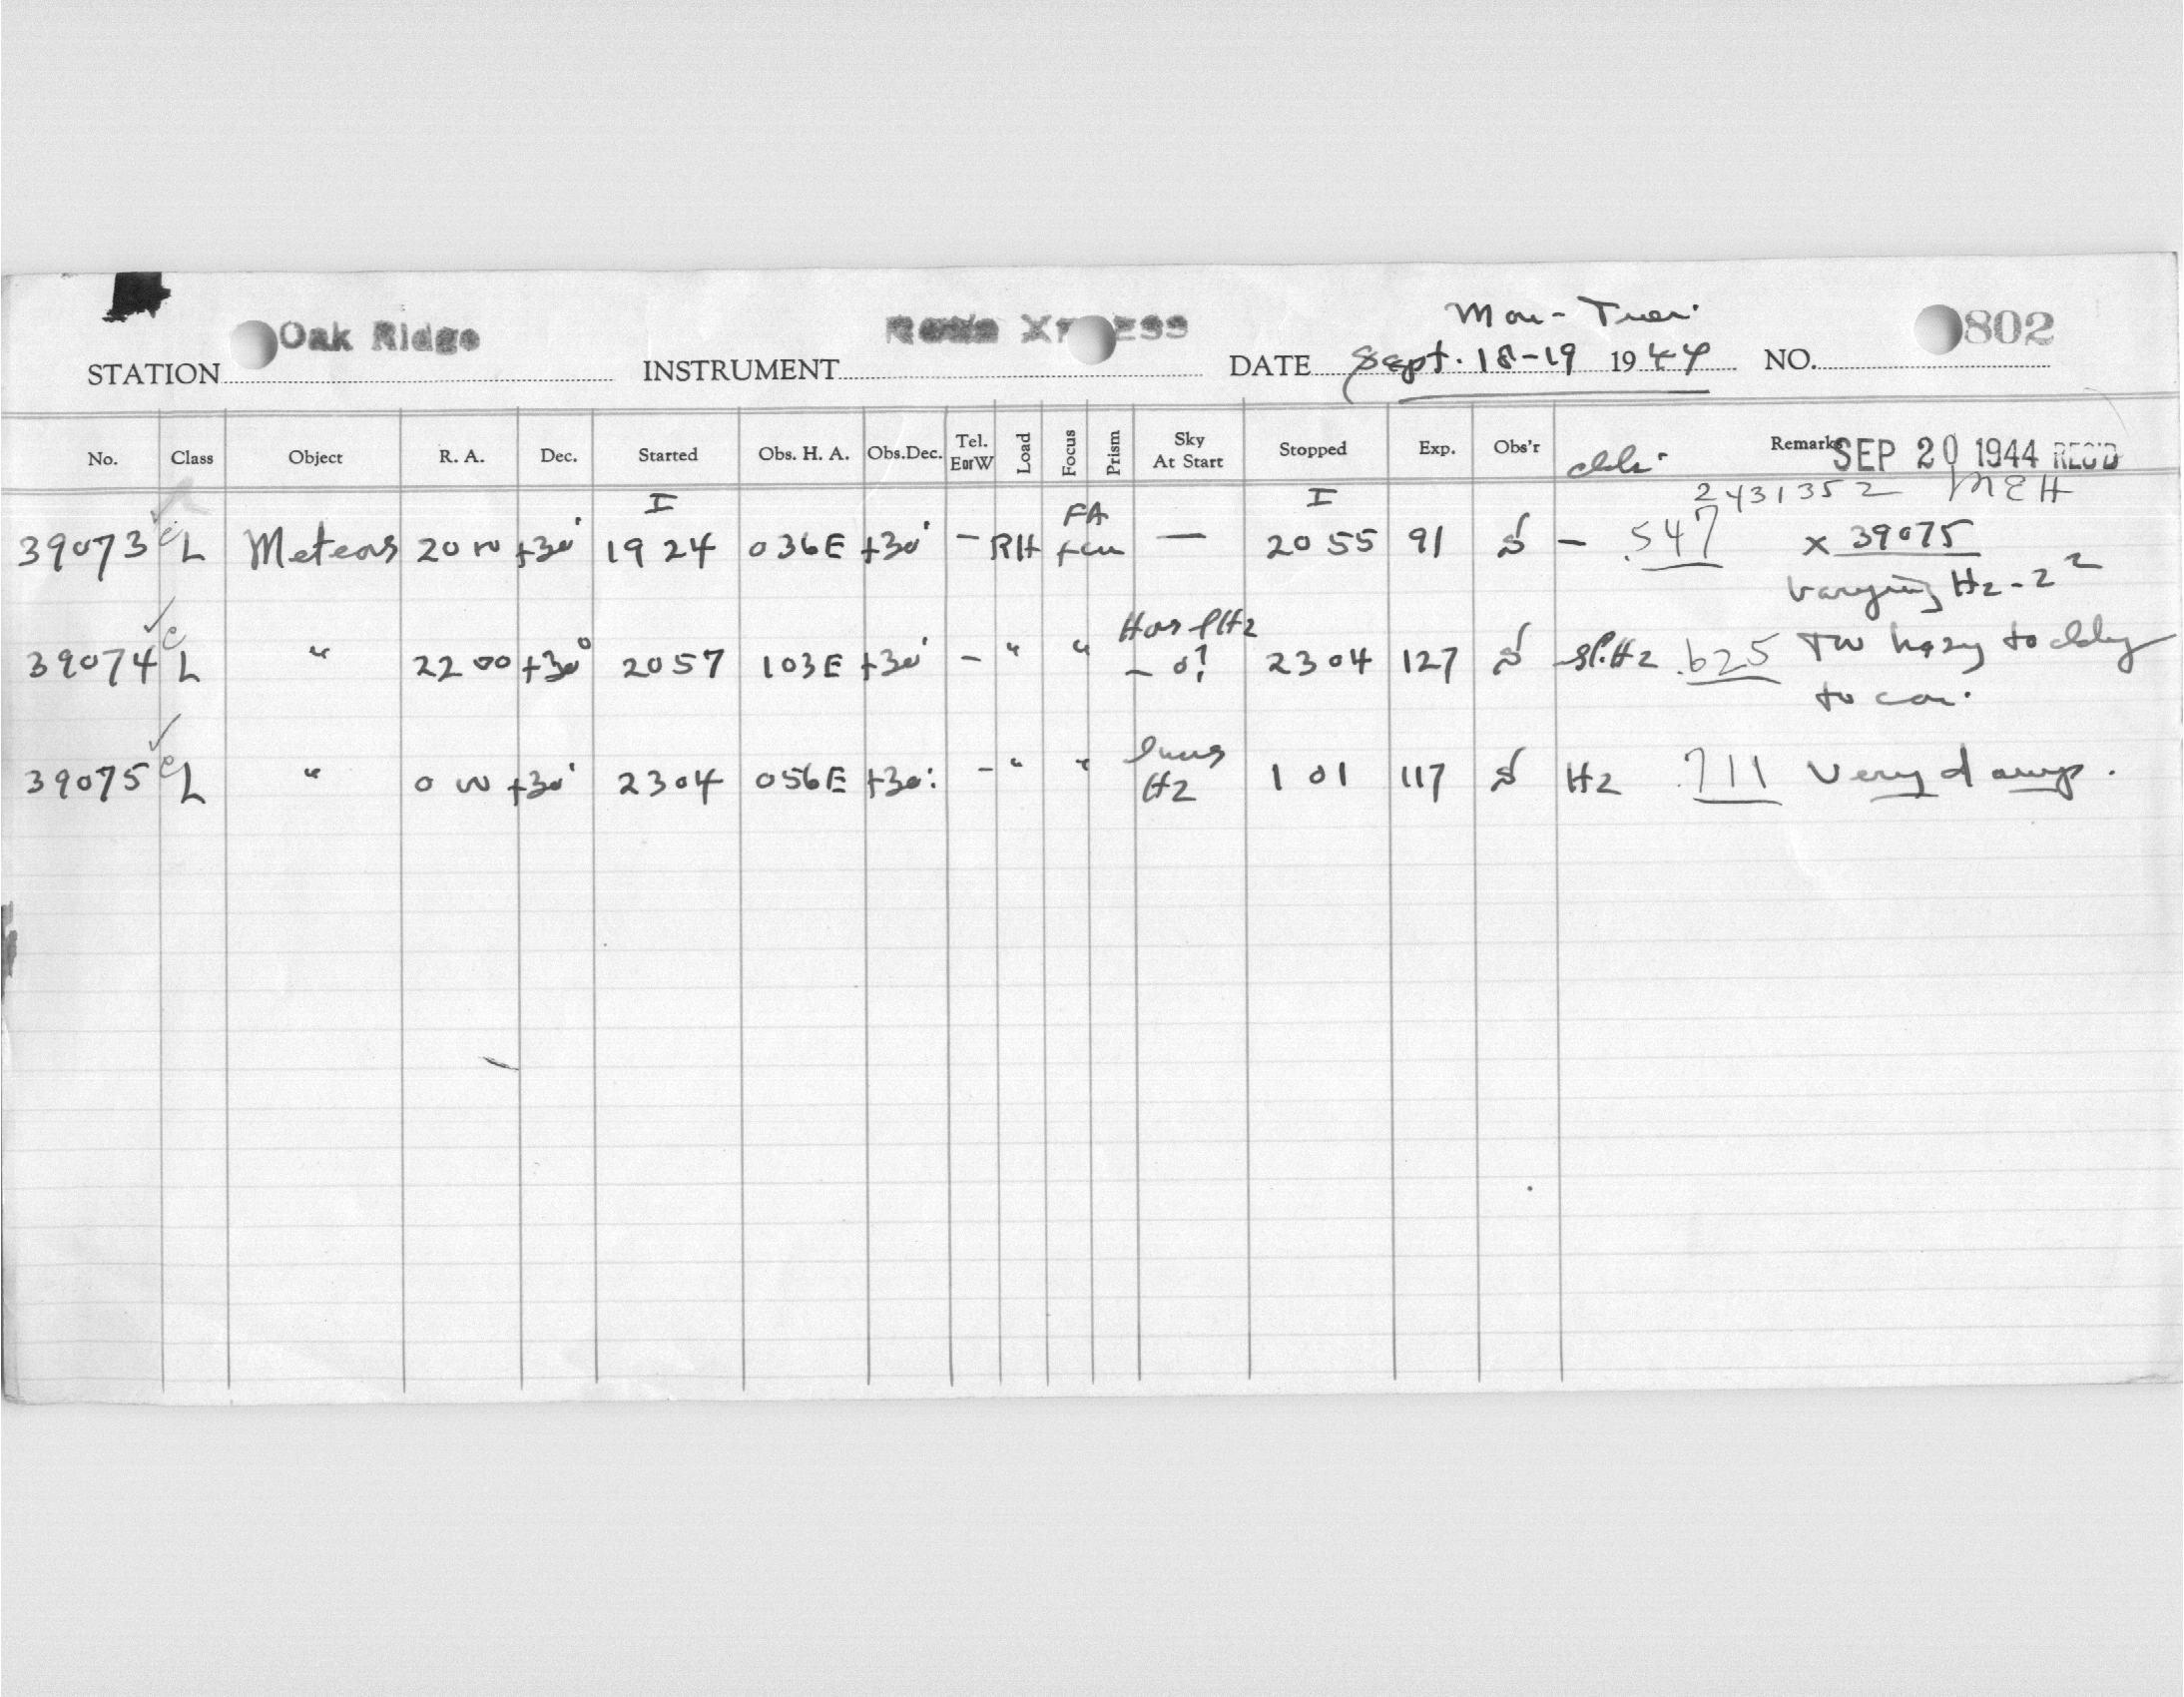 Mon-Tues.
STATION Oak Ridge INSTRUMENT Ross Xpress DATE Sept. 18-19 1944 NO. 802
No. Class Object R. A. Dec. Started Obs. H. A. Obs. Dec. Tel. E or W Load Focus Prism Sky At Start Stopped Exp. Obs'r Remarks SEP 20 1944 REC'D
I FA I 2431352 MEH
39073 c L Meteors 20 00 +30° 19 24 036E +30° - RH — 20 55 91 S - .547 x 39075
varying Hz - 2 2
39074 c L " 22 00 +30° 2057 103E +30° - " " - 0? 2304 127 S -sl.Hz .625 Too hazy to cldy
to con.
39075 c L " 0 00 +30° 2304 056E +30° - " " Hz 1 01 117 S Hz .711 Very damp.